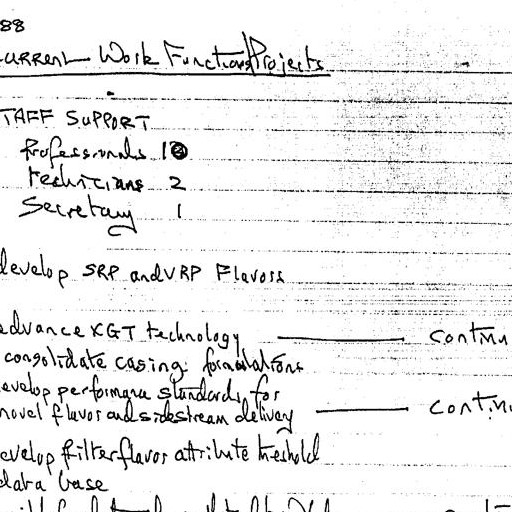 88
urrent Work Function/Projects
TAFF SUPPORT
Professionals 10
Technicians 2
Secretary 1
evelop SRP and VRP Flavors
advance KGT technology — continu
consolidate casing formulations
evelop performance standards for
novel flavor and sidestream delivery — continu
evelop filter flavor attribute threshold
data base